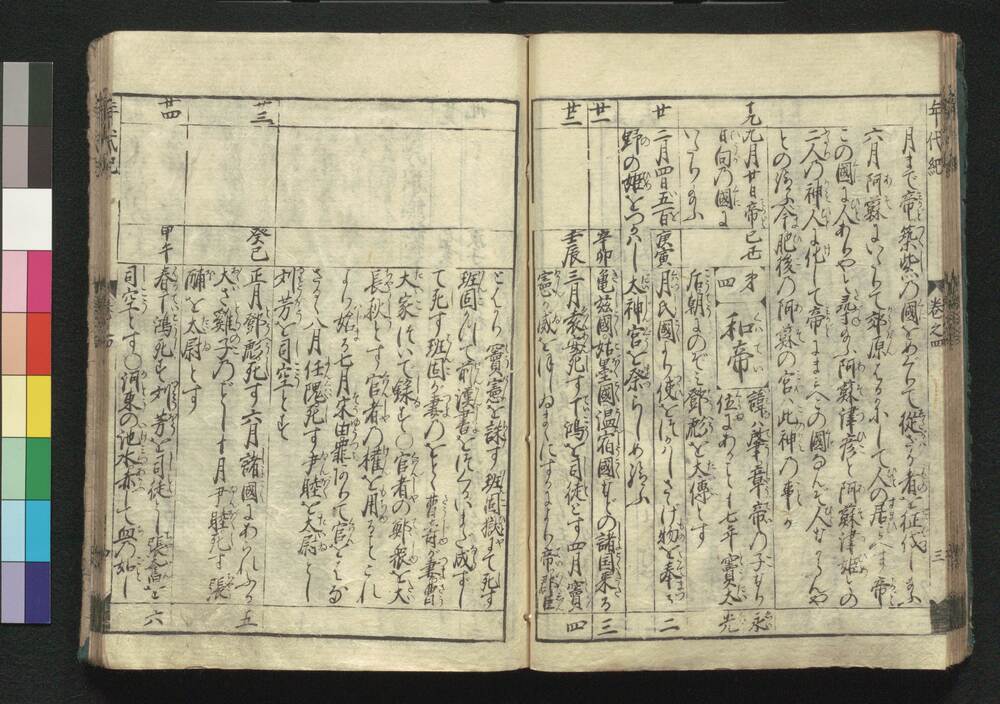 年代紀
卷之四
三
月まで帝築紫の國をめぐりて從ざる者を征伐し給ふ
六月阿蘇にいたりて郊原ひろふして人の居見へず帝
この國に人ありやと
阿蘇津彦と阿蘇津姫との
二人の神人と化して帝にまみへこの國なんぞ人なからんや
との給ふ今肥後の阿蘇の宮ハ此神の事か
九月廿日帝
日向の國に
いたり給ふ
己丑
第四
和帝
諱ハ肇章帝の子なり永
位にあること十七年竇太
光
后朝にのぞみ鄧彪を太傅とす
廿
二月四日五百
野の姫をつかハし大神宮を祭らしめ給ふ
庚寅
月氏國より使をつかハしさゝげ物を奉る
二
廿一
辛卯
亀茲國姑墨國温宿國などの諸国來る
三
廿二
壬辰
三月袁安死す丁鴻を司徒とす四月竇
憲が威をほしいまゝにするにより帝郡臣
四
とはかり竇憲を誅す班固獄にて死す
班固かつて前漢書をつくるいまだ成ずし
て死す班固が妻のをとゝ曹壽が妻曹
大家ついで録す〇宦者の鄭衆を大
長秋とす宦者の權を用ることこれ
より始る七月宋由罪ありて官をはな
さる八月任隗死す尹睦を太尉とし
劉芳を司空とす
廿三
癸巳
正月鄧彪死す六月諸國にあられふる
大さ雞子のごとし十月尹睦死す張
酺を太尉とす
五
廿四
甲午
春丁鴻死す劉芳を司徒とし張奮を
司空とす〇河東の池水赤して血の如し
六
年代紀